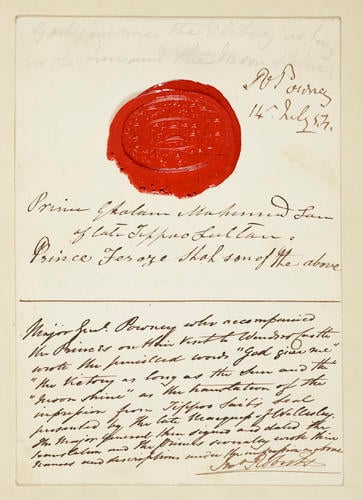 God give me the Victory as long
as the Sun and the Moon shine
P Powney
14 July 54.
Prince Gholam Mahomed Son
of late Tippoo Sultan.
Prince Feroze Shah son of the above
Major Genl. Powney who accompanied
the Princes on their visit to Windsor Castle
wrote the pencilled words "God give me"
"the Victory as long as the Sun and the"
"Moon shine" as the translation of the
impression from Tippoo Saibs seal
presented by the late Marquess of Wellesley.
The Major General then signed and dated the
translation and the Princes severally wrote their
names and descriptions under the impression above
Roberts